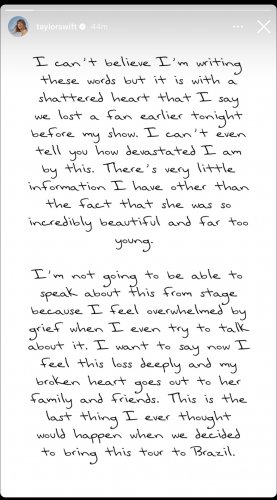 taylorswift 44m
I can't believe I'm writing
these words but it is with a
shattered heart that I say
we lost a fan earlier tonight
before my show. I can't even
tell you how devastated I am
by this. There's very little
information I have other than
the fact that she was so
incredibly beautiful and far too
young.
I'm not going to be able to
speak about this from stage
because I feel overwhelmed by
grief when I even try to talk
about it. I want to say now I
feel this loss deeply and my
broken heart goes out to her
family and friends. This is the
last thing I ever thought
would happen when we decided
to bring this tour to Brazil.